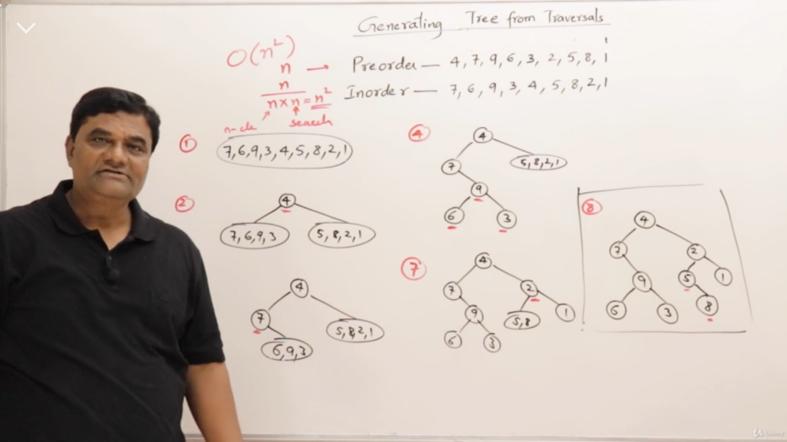 Generating Tree from Traversals
O(n²)
n → Preorder — 4, 7, 9, 6, 3, 2, 5, 8, 1
n
Inorder — 7, 6, 9, 3, 4, 5, 8, 2, 1
n × n = n²
search
① 7, 6, 9, 3, 4, 5, 8, 2, 1
② 4
7, 6, 9, 3 5, 8, 2, 1
4
7 5, 8, 2, 1
6, 9, 3
④ 4
7 5, 8, 2, 1
9
6 3
⑦ 4
7 2
9 5, 8 1
6 3
⑧ 4
7 2
9 5 1
6 3 8